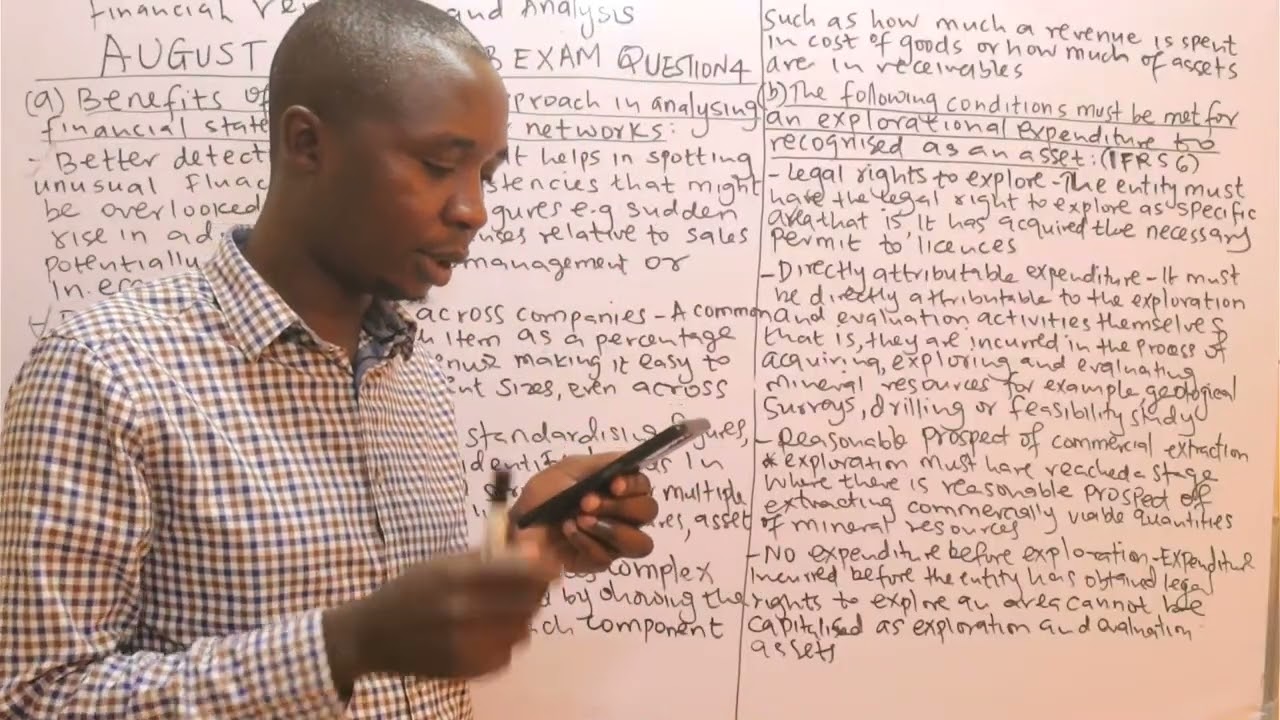 Financial and Analysis
AUGUST EXAM QUESTION 4
(a) Benefits of proach in analysing
financial state networks:
- Better detect It helps in spotting
unusual fluac stencies that might
be overlooked gures e.g sudden
rise in ad relative to sales
potentially management or
across companies - A common
item as a percentage
making it easy to
sizes, even across
standardising figures,
in
multiple
asset
complex
d by showing the
component
such as how much a revenue is spent
in cost of goods or how much of assets
are in receivables
(b) The following conditions must be met for
an explorational expenditure to
recognised as an asset: (IFRS 6)
- Legal rights to explore - The entity must
have the legal right to explore as specific
area that is, it has acquired the necessary
permit to licences
- Directly attributable expenditure - It must
be directly attributable to the exploration
and evaluation activities themselves
that is, they are incurred in the process of
acquiring, exploring and evaluating
mineral resources for example, geological
surveys, drilling or feasibility study
- Reasonable prospect of commercial extraction
* exploration must have reached a stage
where there is reasonable prospect of
extracting commercially viable quantities
of mineral resources
- No expenditure before exploration - Expenditure
incurred before the entity has obtained legal
rights to explore an area cannot be
capitalised as exploration and evaluation
assets